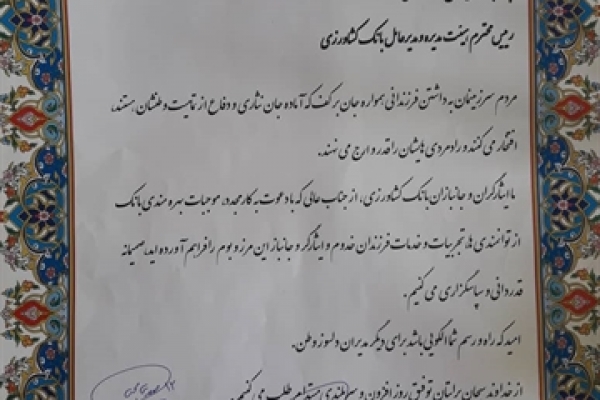 رییس محترم هیئت مدیره و مدیرعامل بانک کشاورزی
مردم سرزمینمان به داشتن فرزندانی همواره جان بر کف که آماده جان نثاری و دفاع از تمامیت وطنشان هستند،
افتخار می کنند و رادمردی هایشان را قدر و ارج می نهند.
ما ایثارگران و جانبازان بانک کشاورزی، از جناب عالی که با دعوت به کار مجدد، موجبات بهره مندی بانک
از توانمندی ها، تجربیات و خدمات فرزندان خدوم و ایثارگر و جانباز این مرز و بوم را فراهم آورده اید، صمیمانه
قدردانی و سپاسگزاری می کنیم.
امید که راه و رسم شما الگویی باشد برای دیگر مدیران دلسوز وطن.
از خداوند سبحان برایتان توفیق روز افزون و سربلندی مستدام طلب می کنیم.